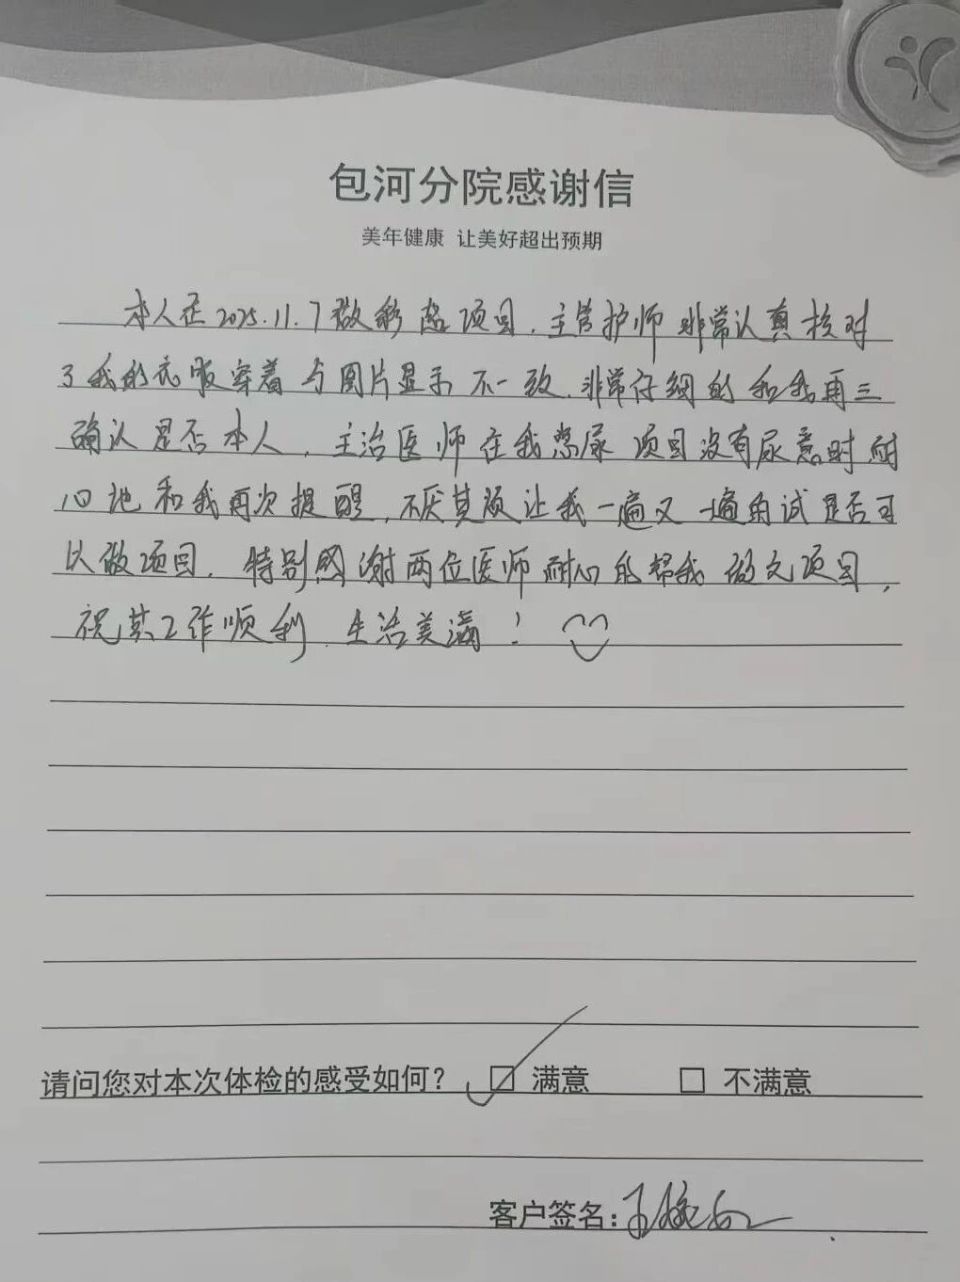 包河分院感谢信
美年健康 让美好超出预期
本人在2025.11.7做彩超项目，主管护师非常认真核对
了我的衣服穿着与图片显示不一致，非常仔细的和我再三
确认是否本人，主治医师在我憋尿项目没有尿意时耐
心地和我再次提醒，不厌其烦让我一遍又一遍尝试是否可
以做项目，特别感谢两位医师耐心的帮我做完项目，
祝其工作顺利，生活美满！
请问您对本次体检的感受如何？ ☑ 满意 □ 不满意
客户签名：